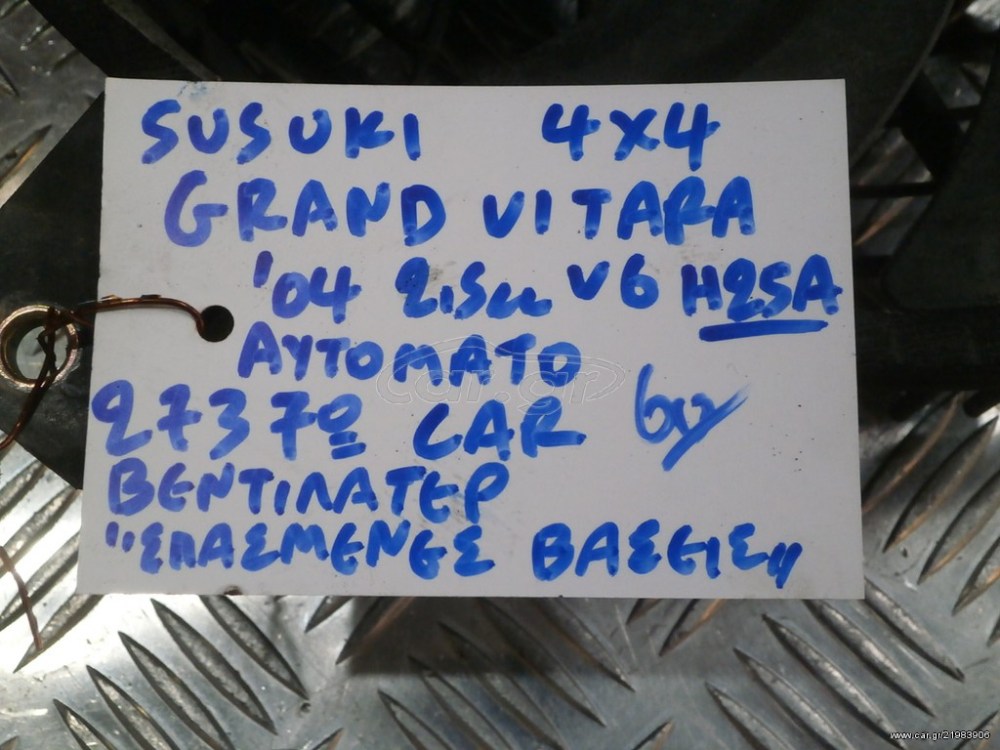 SUSUKI 4X4
GRAND VITARA
'04 2,5cc V6 H25A
ΑΥΤΟΜΑΤΟ
2737º CAR
ΒΕΝΤΙΛΑΤΕΡ
"ΣΠΑΣΜΕΝΕΣ ΒΑΣΕΙΣ"
car.gr
www.car.gr/21983906